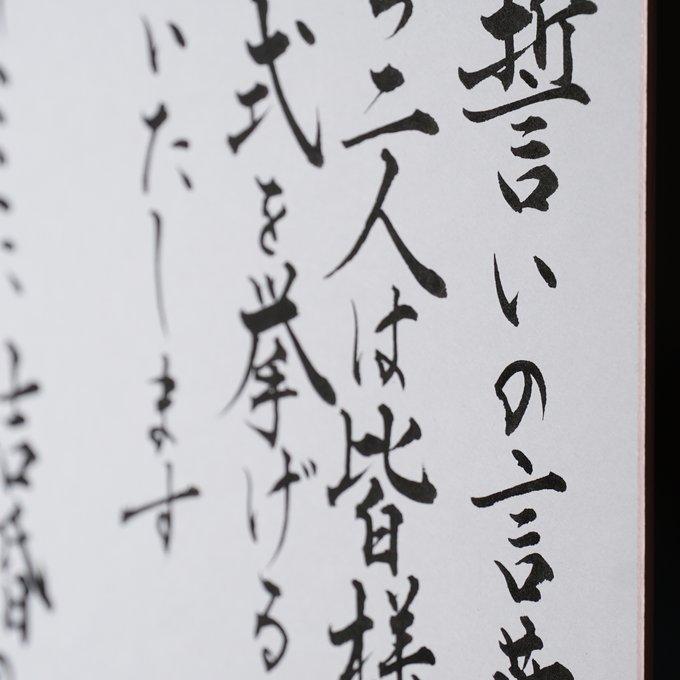 誓いの言葉
二人は皆様
式を挙げる
いたします
結婚の